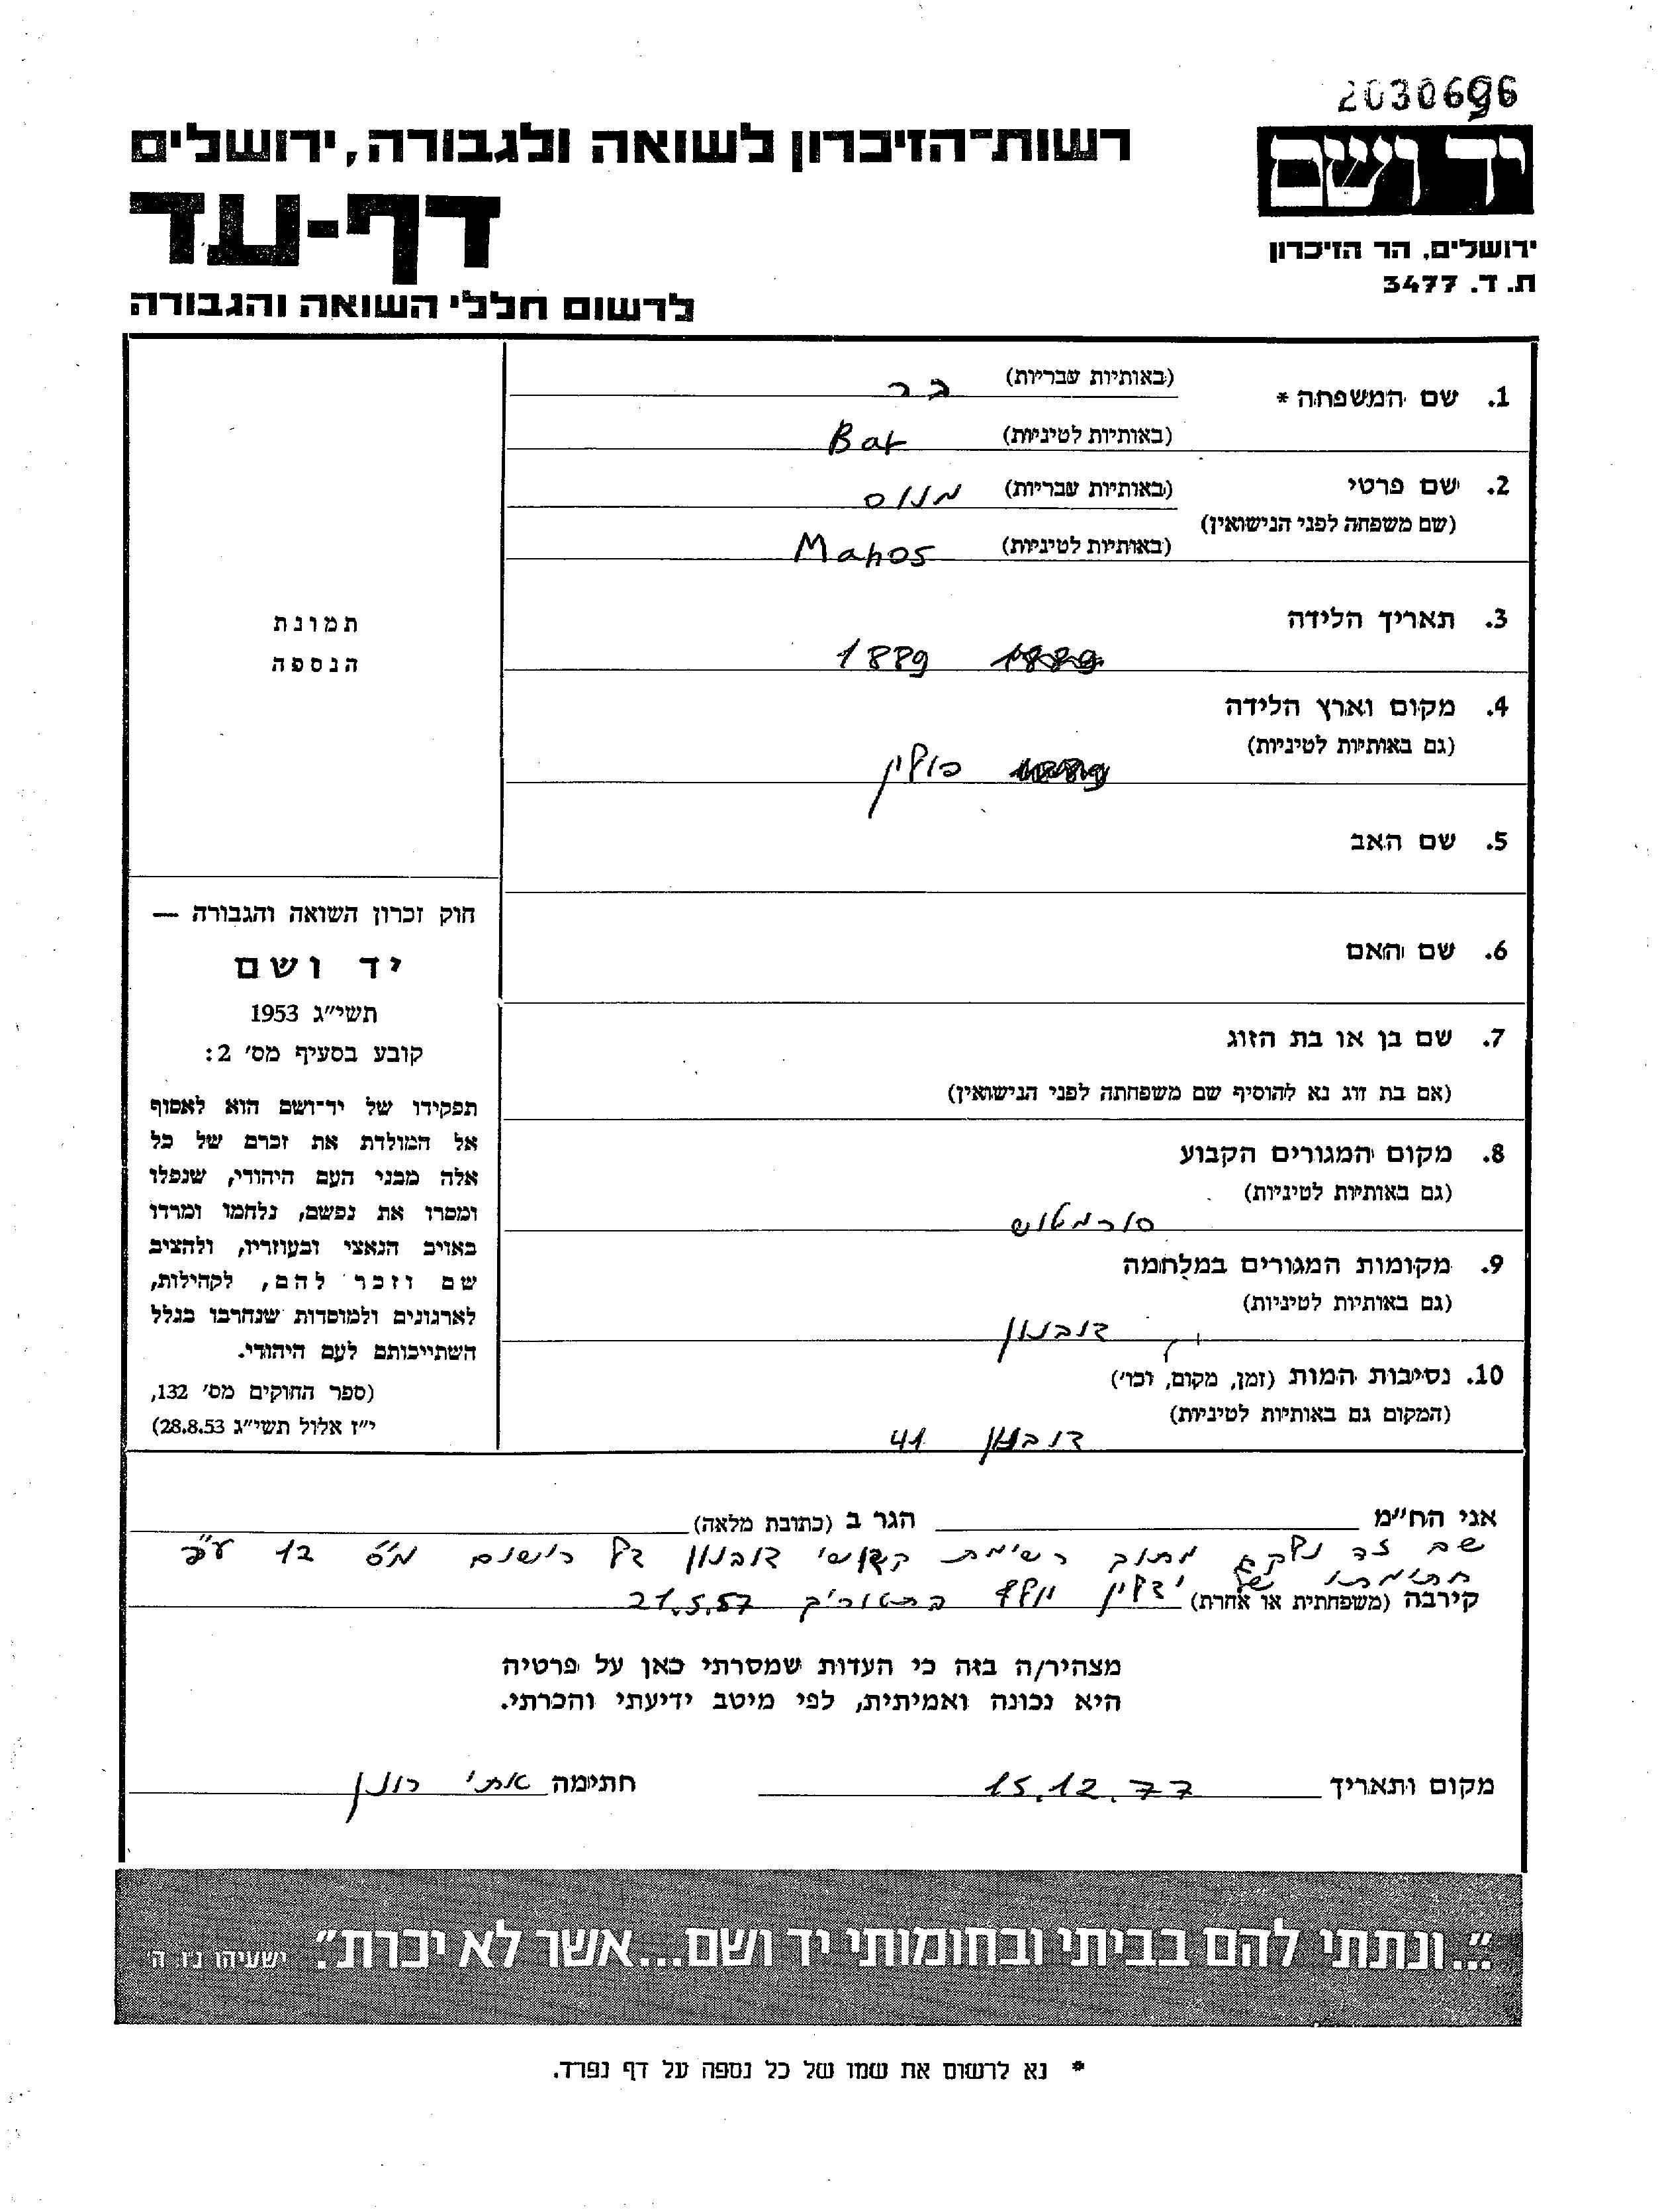 2030696
יד ושם
רשות-הזיכרון לשואה ולגבורה, ירושלים
דף-עד
ירושלים, הר הזיכרון
ת. ד. 3477
לרשום חללי השואה והגבורה
1. שם המשפחה * (באותיות עבריות) בר
(באותיות לטיניות) Bar
2. שם פרטי (באותיות עבריות) מנוס
(שם משפחה לפני הנישואין)
(באותיות לטיניות) Manos
3. תאריך הלידה
1889 1889
4. מקום וארץ הלידה
(גם באותיות לטיניות)
1889 פולין
5. שם האב
6. שם האם
7. שם בן או בת הזוג
(אם בת זוג נא להוסיף שם משפחתה לפני הנישואין)
8. מקום המגורים הקבוע
(גם באותיות לטיניות)
סורמטוש
9. מקומות המגורים במלחמה
(גם באותיות לטיניות)
דובנון
10. נסיבות המות (זמן, מקום, וכו')
(המקום גם באותיות לטיניות)
דובנון 41
תמונת
הנספה
חוק זכרון השואה והגבורה —
יד ושם
תשי"ג 1953
קובע בסעיף מס' 2:
תפקידו של יד-ושם הוא לאסוף
אל המולדת את זכרם של כל
אלה מבני העם היהודי, שנפלו
ומסרו את נפשם, נלחמו ומרדו
באויב הנאצי ובעוזריו, ולהציב
שם וזכר להם, לקהילות,
לארגונים ולמוסדות שנחרבו בגלל
השתייכותם לעם היהודי.
(ספר החוקים מס' 132,
י"ז אלול תשי"ג 28.8.53)
אני הח"מ הגר ב (כתובת מלאה)
שם זה נלקח מתוך רשימת קדושי דובנון דף רישום מס 12 ע"פ
חתימתו של
קירבה (משפחתית או אחרת) בתאריך 21.5.57
מצהיר/ה בזה כי העדות שמסרתי כאן על פרטיה
היא נכונה ואמיתית, לפי מיטב ידיעתי והכרתי.
מקום ותאריך 15.12.77 חתימה אתי רונן
"...ונתתי להם בביתי ובחומותי יד ושם...אשר לא יכרת". ישעיהו נ"ו, ה'
* נא לרשום את שמו של כל נספה על דף נפרד.